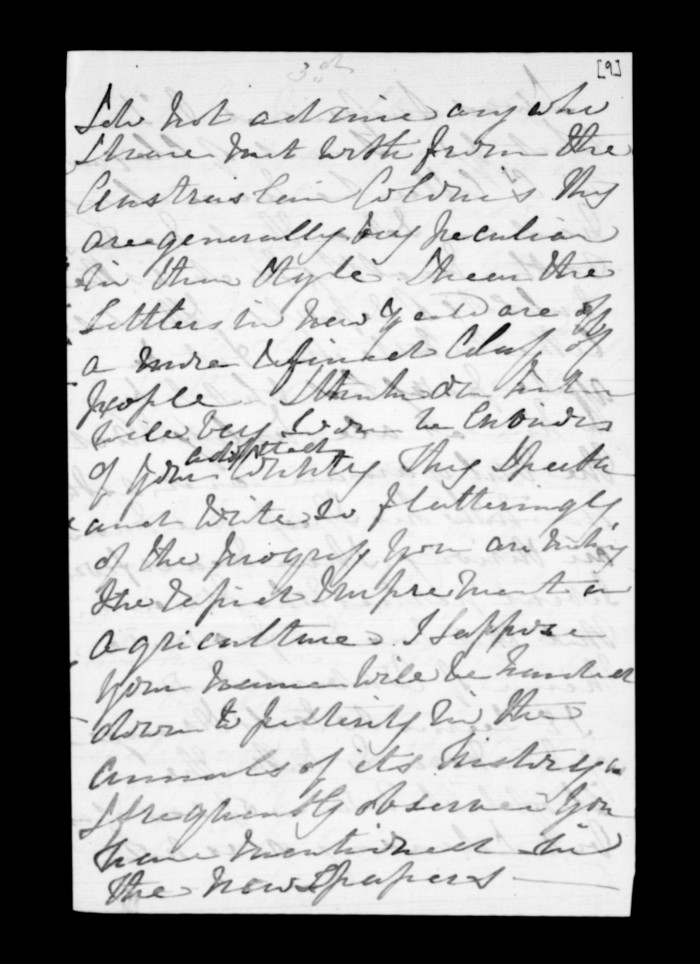 3rd
[9]
I do not admire any who
I have met with from the
Australian Colonies They
are generally very peculiar
in their Style I hear the
Settlers in New Zeald are of
a more refined Class of
people I think
will very soon be envious
of your adopted Country They Speak
and write so flatteringly
of the progress you are making
the rapid Impre ment in
agriculture. I suppose
your name will be handed
down to posterity in the
annals of its history
I frequently observe you
have mentioned in
the news papers